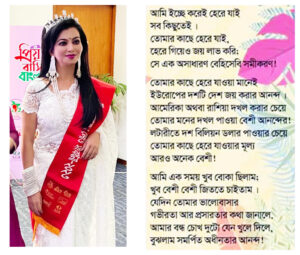 প্রিয়
বাংলা
আমি ইচ্ছে করেই হেরে যাই
সব কিছুতেই ।
তোমার কাছে হেরে যাই,
হেরে গিয়েও জয় লাভ করি:
সে এক অসাধারণ বেহিসেবি সমীকরণ!
তোমার কাছে হেরে যাওয়া মানেই
ইউরোপের দশটি দেশ জয় করার আনন্দ ।
আমেরিকা অথবা রাশিয়া দখল করার চেয়ে
তোমার মনের দখল পাওয়া বেশী আনন্দের!
লটারীতে দশ বিলিয়ন ডলার পাওয়ার চেয়ে
তোমার কাছে হেরে যাওয়ার মূল্য
আরও অনেক বেশী!
আমি এক সময় খুব বোকা ছিলাম;
খুব বেশী বেশী জিততে চাইতাম ।
যেদিন তোমার ভালোবাসার
গভীরতা আর প্রসারতার কথা জানালে,
আমার বন্ধ চোখ দুটো যেন খুলে দিলে,
বুঝলাম সমর্পিত অধীনতার আনন্দ!